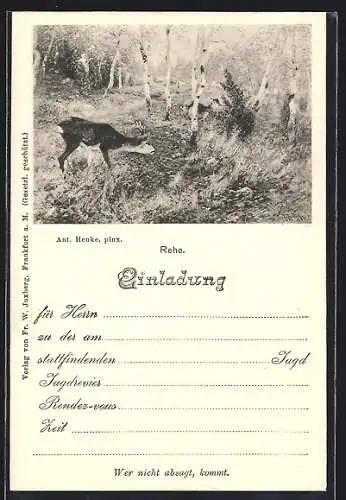 Ant. Henke, pinx.
Rehe.
Einladung
für Herrn
zu der am
stattfindenden Jagd
Jagdrevier
Rendez-vous
Zeit
Wer nicht absagt, kommt.
Verlag von Fr. W. Jaxberg, Frankfurt a. M. (Gesetzl. geschützt.)